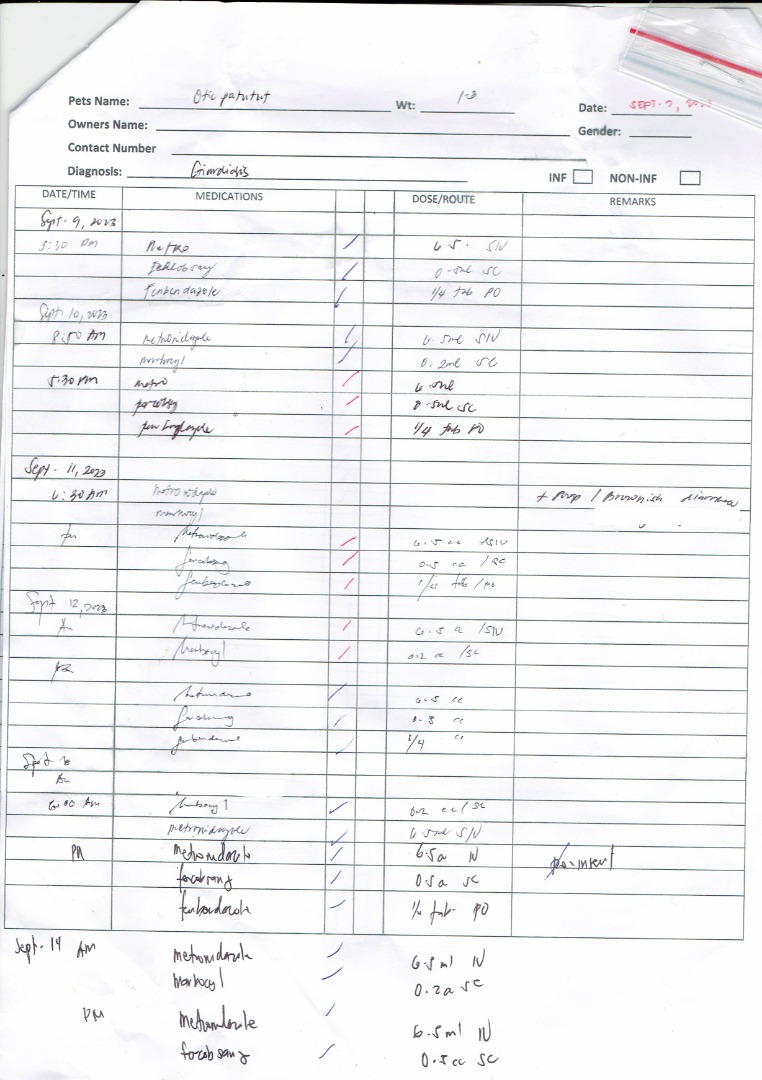 Pets Name: Otic patutut Wt: 1-3 Date: SEPT. 9, 202
Owners Name: Gender:
Contact Number
Diagnosis: Giardiasis INF NON-INF
DATE/TIME MEDICATIONS DOSE/ROUTE REMARKS
Sept. 9, 2023
5:30 PM Metro 6.5. SIV
0.5ml SC
Fenbendazole 1/4 tab PO
Sept 10, 2023
8:50 AM metronidazole 6.5ml SIV
marbocyl 0.2ml SC
5:30 PM metro 6.5ml
0.5ml SC
1/4 tab PO
Sept. 11, 2023
6:30 AM metronidazole + Poop / Brownish diarrhea
marbocyl
Metronidazole 6.5 cc /SIV
0.5 cc /SC
fenbendazole 1/4 tab /po
Sept 12, 2023
Am 6.5 cc /SIV
Marbocyl 0.2 cc /SC
6.5 cc
0.5 cc
1/4
Am
6:00 AM Marbocyl 0.2 cc/SC
metronidazole 6.5ml S/V
PM metronidazole 6.5a IV
forcobsang 0.5a SC
fenbendazole 1/4 tab. PO
Sept. 14 AM metronidazole 6.5ml IV
Marbocyl 0.2a SC
PM Metronidazole 6.5ml IV
forcobsang 0.5cc SC